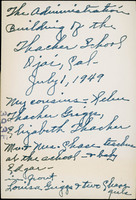 The Administration
Building of the
Thacher School
Ojai, Cal.
July 1, 1949
My cousins - Helen
Thacher Griggs,
Elizabeth Thacher
Mr & Mrs. Chase teachers
at the school & baby
Edgar -
In front
Louisa Griggs & two Chase
girls